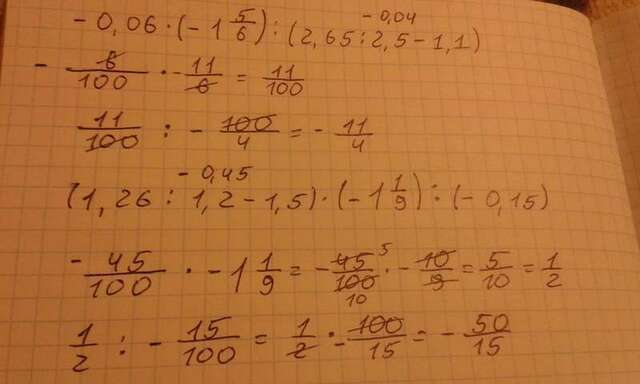 - 0,04
- 0,06 · (- 1 5/6) : (2,65 : 2,5 - 1,1)
- 6/100 · - 11/6 = 11/100
11/100 : - 100/4 = - 11/4
- 0,45
(1,26 : 1,2 - 1,5) · (- 1 1/9) : (- 0,15)
- 45/100 · - 1 1/9 = - 45 5/100 10 · - 10/9 = 5/10 = 1/2
1/2 : - 15/100 = 1/2 · - 100/15 = - 50/15